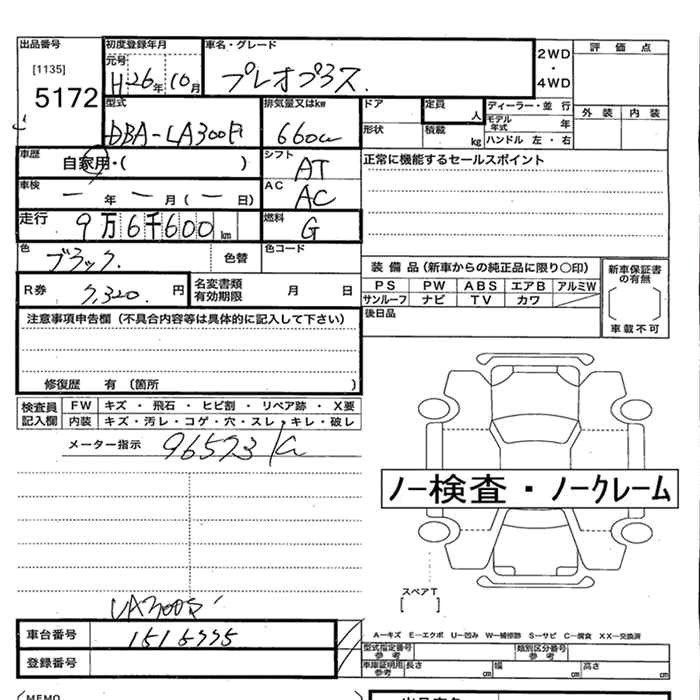 出品番号 初度登録年月 車名・グレード 2WD ・ 4WD 評価点
[1135] 元号 H26年10月 プレオプラス
5172 型式 排気量又はkw ドア 定員 人 ディーラー・並行 外装 内装
DBA-LA300F 660cc 形状 積載 kg モデル年式 年
ハンドル 左・右
車歴 自家用・( ) シフト AT 正常に機能するセールスポイント
車検 ー年ー月(ー日) AC AC
走行 9万6千600km 燃料 G
色 ブラック 色替 色コード
装備品(新車からの純正品に限り○印) 新車保証書の有無
R券 7,320.円 名変書類有効期限 月 日 PS PW ABS エアB アルミW
サンルーフ ナビ TV カワ
注意事項申告欄(不具合内容等は具体的に記入して下さい) 後日品 車載不可
修復歴 有(箇所 )
検査員記入欄 FW キズ・飛石・ヒビ割・リペア跡・X要
内装 キズ・汚レ・コゲ・穴・スレ・キレ・破レ
メーター指示 96573K
ノー検査・ノークレーム
スペアT
[ ]
LA300S
車台番号 A-キズ E-エクボ U-凹み W-補修跡 S-サビ C-腐食 XX-交換済
登録番号 型式指定番号参考 類別区分番号参考
車庫証明用参考 長さ cm 幅 cm 高さ cm
(MEMO